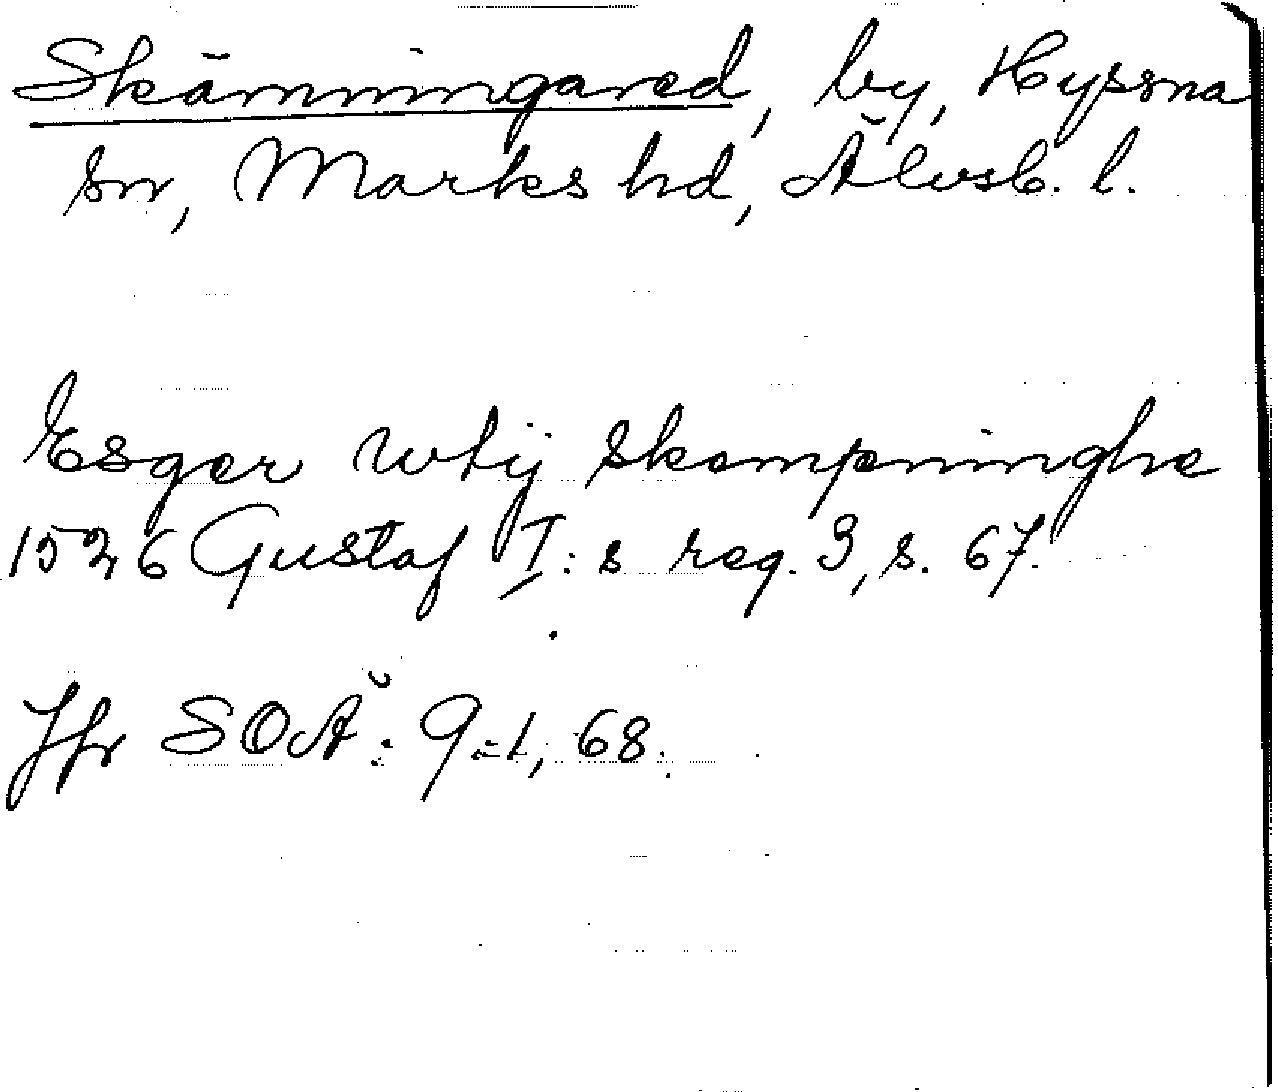 Skämningared, by, Hyssna
sn, Marks hd, Älvsb. l.
Esger wtij Skempninghe
1526 Gustaf I:s reg. 3, s. 67.
Jfr SOÄ: 9:1, 68.